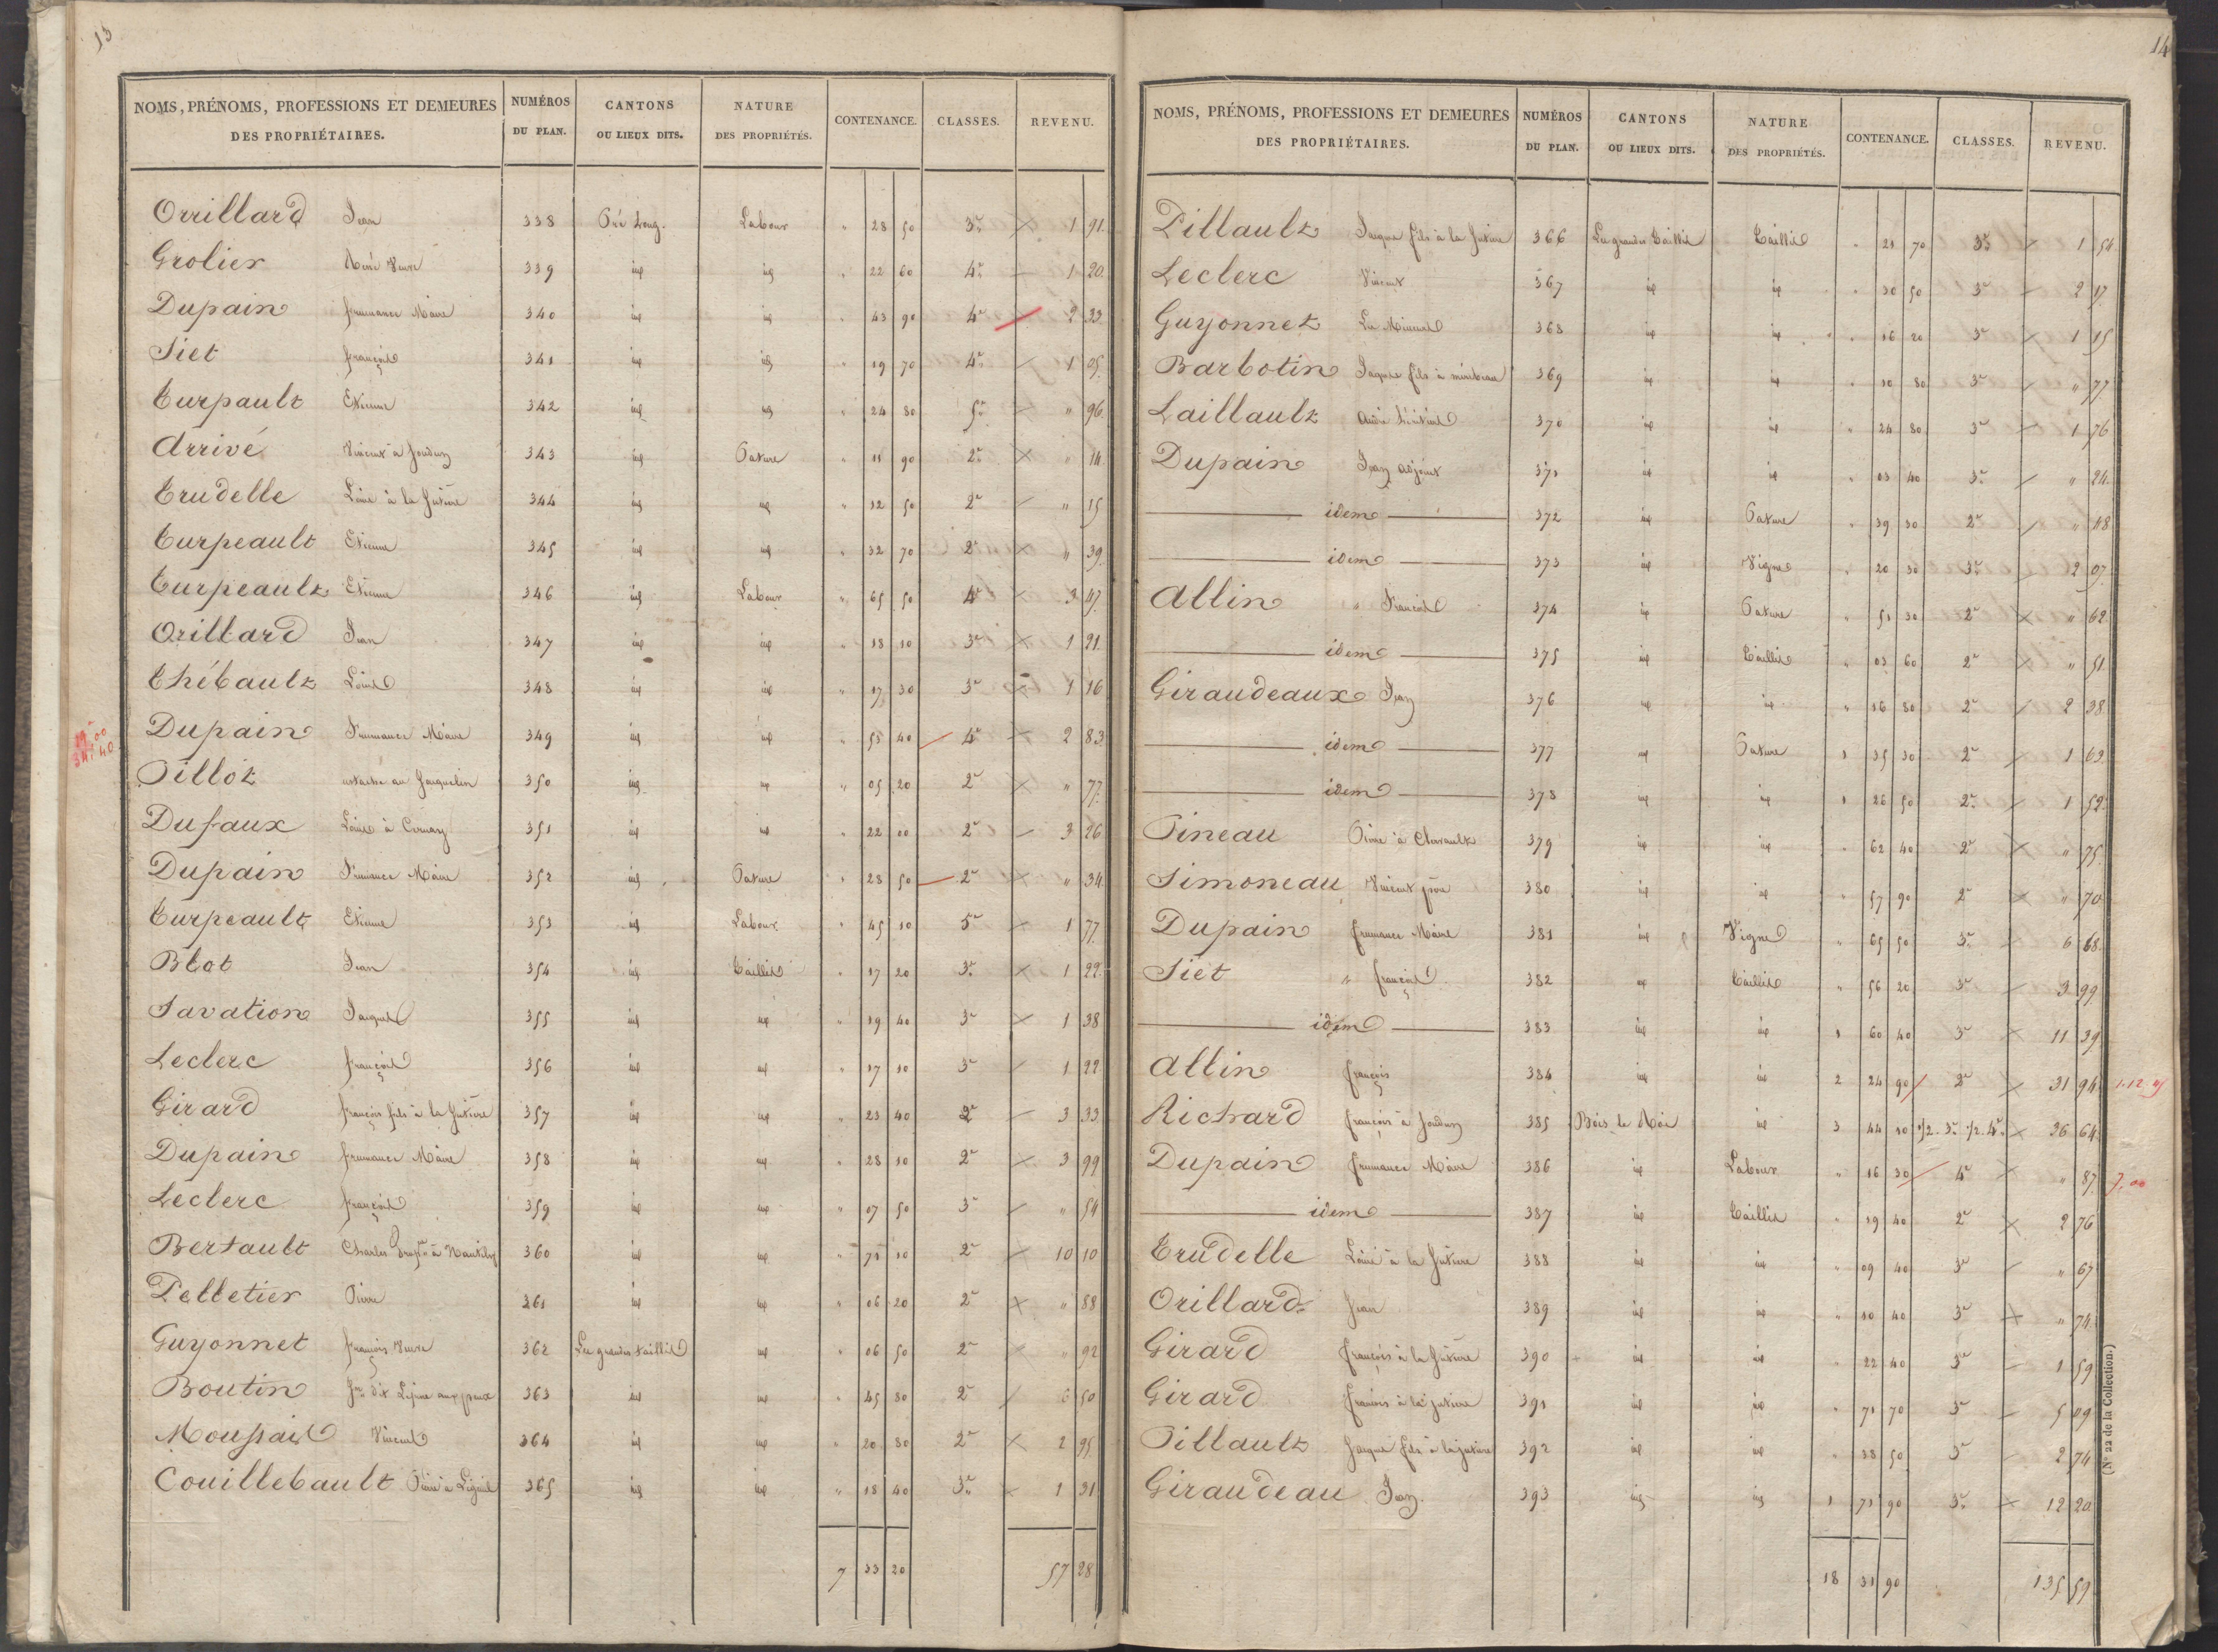 13
NOMS, PRÉNOMS, PROFESSIONS ET DEMEURES DES PROPRIÉTAIRES. NUMÉROS DU PLAN. CANTONS OU LIEUX DITS. NATURE DES PROPRIÉTÉS. CONTENANCE. CLASSES. REVENU.
Orrillard Jean 338 Pré Long. Labour " 28 50 3e 1 91
Grolier René Veuve 339 id id " 22 60 4e 1 20
Dupain frumance Maire 340 id id " 43 90 4e 2 33
Siet françois 341 id id " 19 70 4e 1 05
Turpault Etienne 342 id id " 24 80 5e " 96
Arrivé Vincent à 343 id Pature " 11 90 2e " 14
Trudelle Louis à la 344 id id " 12 50 2e " 15
Turpeault Etienne 345 id id " 32 70 2e " 39
Turpeault Etienne 346 id Labour " 65 50 4e 3 47
Orillard Jean 347 id id " 18 10 3e 1 21
Thébault Louis 348 id id " 17 30 3e 1 16
19.00
34.40
Dupain frumance Maire 349 id id " 53 40 4e 2 83
Pillot au Jacquelin 350 id id " 05 20 2e " 77
Dufaux Louis à Cernay 351 id id " 22 00 2e 3 26
Dupain frumance Maire 352 id Pature " 28 50 2e " 34
Turpeault Etienne 353 id Labour " 45 10 5e 1 77
Blot Jean 354 id Taillis " 17 20 3e 1 22
Savation Jacques 355 id id " 19 40 3e 1 38
Leclerc françois 356 id id " 17 10 3e 1 22
Girard françois fils à la 357 id id " 23 40 2e 3 33
Dupain frumance Maire 358 id id " 28 10 2e 3 99
Leclerc françois 359 id id " 07 50 3e " 54
Bertault Charles à 360 id id " 71 10 2e 10 10
Pelletier Pierre 361 id id " 06 20 2e " 88
Guyonnet françois Veuve 362 Les grandes taillis id " 06 50 2e " 92
Boutin dit Lejeune 363 id id " 45 80 2e 6 50
Moussais Vincent 364 id id " 20 80 2e 2 95
Couillebault Pierre à 365 id id " 18 40 3e 1 31
7 33 20 57 28
14
NOMS, PRÉNOMS, PROFESSIONS ET DEMEURES DES PROPRIÉTAIRES. NUMÉROS DU PLAN. CANTONS OU LIEUX DITS. NATURE DES PROPRIÉTÉS. CONTENANCE. CLASSES. REVENU.
Pillault Jacques fils à la 366 Les grandes Taillis Taillis " 21 70 3e 1 54
Leclerc Vincent 367 id id " 30 50 3e 2 17
Guyonnet Les Mineurs 368 id id " 16 20 3e 1 15
Barbotin Jacques fils à mirebeau 369 id id " 10 80 3e " 77
Laillault André héritiers 370 id id " 24 80 3e 1 76
Dupain Jean adjoint 371 id id " 03 40 3e " 24
idem 372 id Pature " 39 30 2e " 48
idem 373 id Vigne " 20 30 3e 2 07
Allin " François 374 id Pature " 51 30 2e " 62
idem 375 id Taillis " 03 60 2e " 51
Giraudeaux Jean 376 id id " 16 80 2e 2 38
idem 377 id Pature 1 35 30 2e 1 63
idem 378 id id 1 26 50 2e 1 52
Pineau Pierre à 379 id id " 62 40 2e " 75
Simoneau Vincent père 380 id id " 57 90 2e " 70
Dupain frumance Maire 381 id Vigne " 65 50 3e 6 68
Siet " françois 382 id Taillis " 56 20 3e 3 99
idem 383 id id 1 60 40 3e 11 39
Allin françois 384 id id 2 24 90 2e 31 94
Richard françois à 385 Bois le Roi id 3 44 10 1/2. 3e 1/2. 4e 36 64
Dupain frumance Maire 386 id Labour " 16 30 4e " 87 7.00
idem 387 id Taillis " 19 40 2e 2 76
Trudelle Louis à la 388 id id " 09 40 3e " 67
Orillard Jean 389 id id " 10 40 3e " 74
Girard françois à la 390 id id " 22 40 3e 1 59
Girard françois à la 391 id id " 71 70 3e 5 09
Pillault Jacques fils à la 392 id id " 38 50 3e 2 74
Giraudeau Jean. 393 id id 1 71 90 3e 12 20
18 31 90 135 59
(N° 22 de la Collection.)